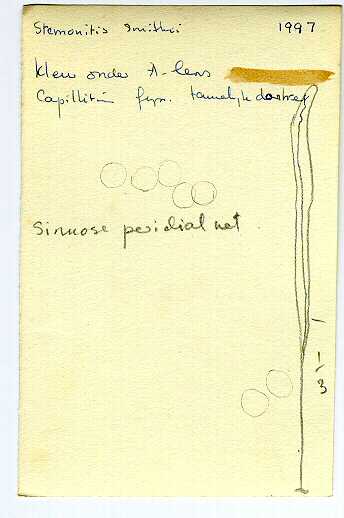 Stemonitis smithii 1997
kleur onder A-lens
Capillitium fijn. tamelijk donker
Sinuose peridial net.
1/3